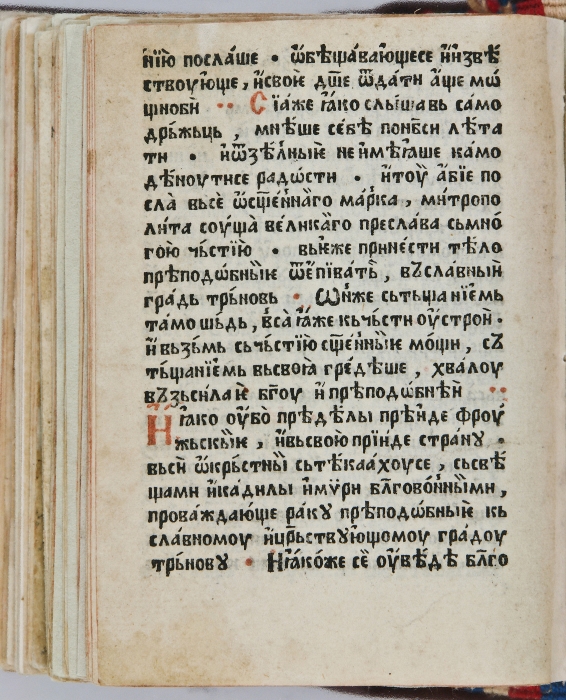 нїю посла́ше • ѡ҆бѣщава́ющесе и҆и҆звѣ
ствоую҆ще, и҆своѥ дш҃е ѿда́ти а҆ще мѡ́
щноби ·· Сїаже ꙗ҆ко слы́шавь само
дрь́жьць , мнѣ́ше се́бѣ поне́си лѣ́та
ти • и҆ѿзѣ́лныѥ неи҆мѣ́ꙗше ка́мо
дѣноутисе ра́дѡсти • и҆тоу̀ а҆́бїе по
сла̀ высѐ ѡ҆сщ҃е́ннаго ма́рка , ми́тропо
ли́та соуща вели́каго пресла́ва сьмно́
гою чь́стїю • выѥже прине́сти тѣ́ло
прѣподѡ́бныѥ ѿе҆пїва́тѣ, въсла́вный
гра́дь трь́новь • Ѡ҆н́же сьтьщанїе́мь
та́мо шь́дь, вса̀ ꙗ҆́же кьчь́сти оу҆строи •
и҆ вьзь́мь сьчь́стїю сщ҃е́нныѥ мо́щи , съ
тьщанїе́мь вьсвоꙗ̀ гре́дѣше , хва́лоу
въ́зьси́лаѥ бг҃оу и҆ прѣподѡ́бнѣи ··
И҆ꙗ́ко оу҆́бо прѣдѣ́лы прѣи́де фроу́
жьскыѥ , и҆вьсвою̀ прїи́де стра́нꙋ •
вьси̑ ѡ҆крь́стнїи сьтѣка́ахоусе , сьсвѣ́
щами и҆ка́дилы и҆мѵ́ри бл҃гово́нными ,
прова́ждающе ра́кꙋ прѣподѡ́бныѥ кь
сла́вномоу и҆цр҃ьствꙋ́ющомоу гра́доу
трь́новꙋ • И҆ꙗ҆ко́же се̏ оу҆вѣ́дѣ бл҃го